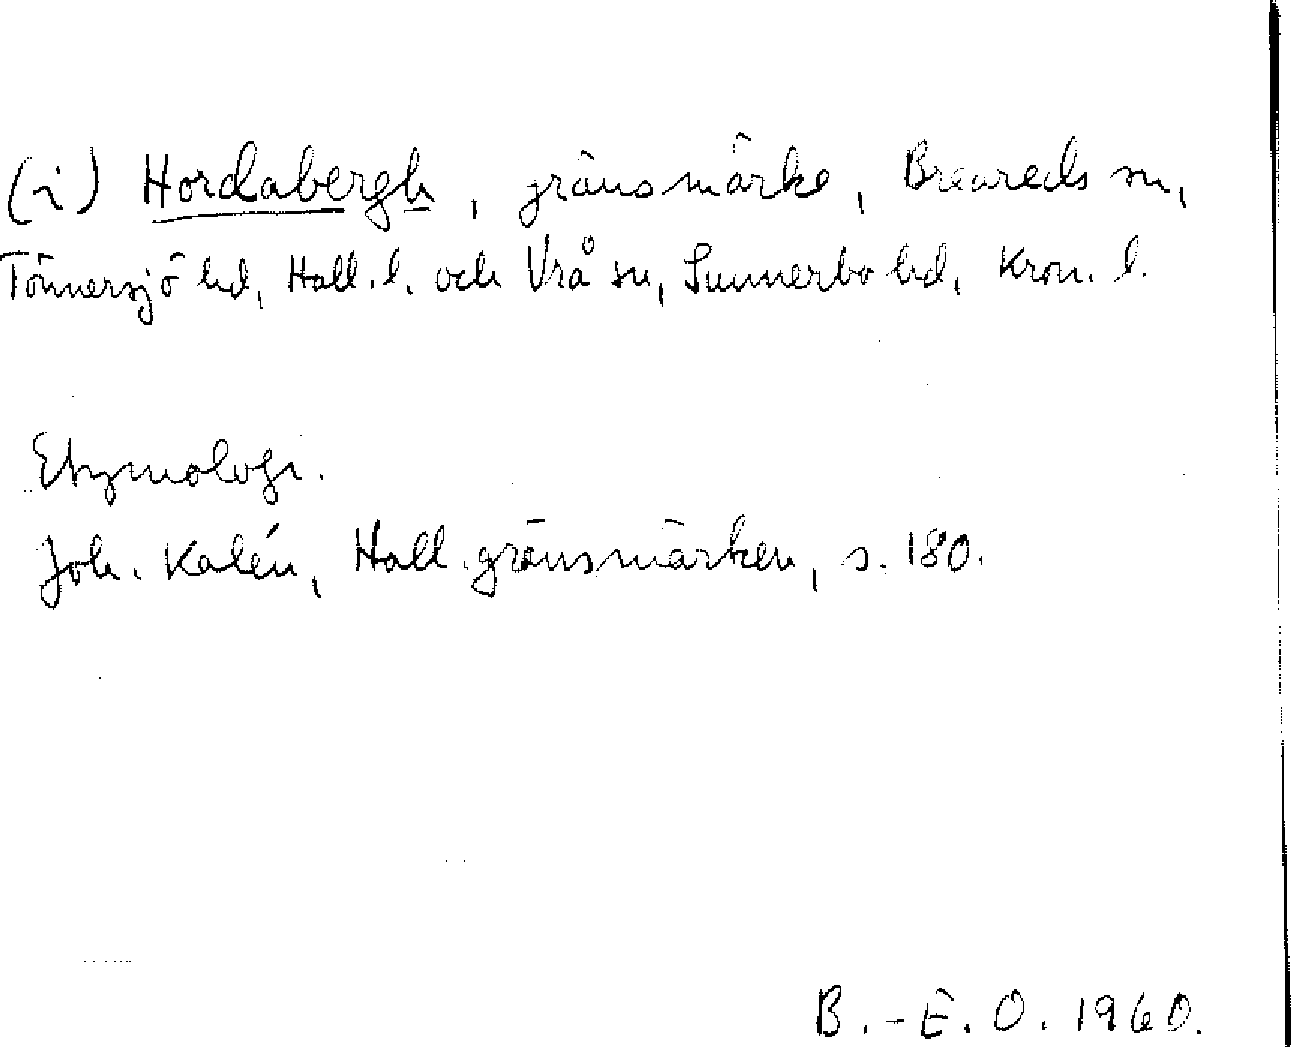 (i) Hordabergh, gränsmärke, Breareds sn,
Tönnersjö hd, Hall. l. och Vrå sn, Sunnerbo hd, Kron. l.
Etymologi.
Joh. Kalén, Hall. gränsmärken, s. 180.
B.-E. O. 1960.